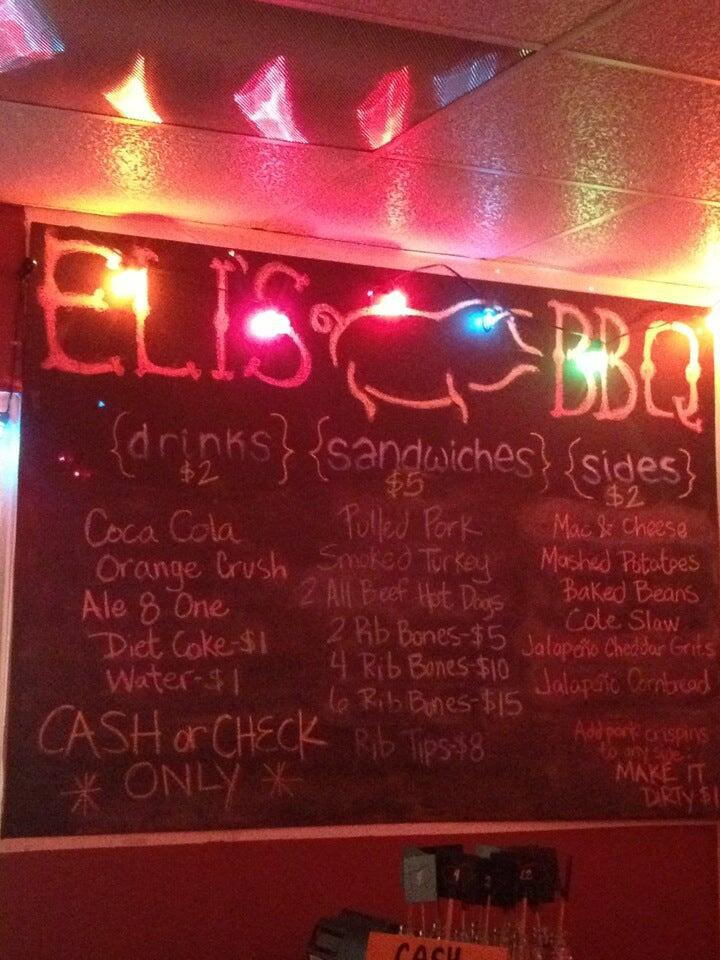 ELI'S BBQ
{drinks}
$2
Coca Cola
Orange Crush
Ale 8 One
Diet Coke-$1
Water-$1
CASH or CHECK
* ONLY *
{sandwiches}
$5
Pulled Pork
Smoked Turkey
2 All Beef Hot Dogs
2 Rib Bones-$5
4 Rib Bones-$10
6 Rib Bones-$15
Rib Tips-$8
{sides}
$2
Mac & Cheese
Mashed Potatoes
Baked Beans
Cole Slaw
Jalapeño Cheddar Grits
Jalapeño Cornbread
Add pork crispins
to any side
MAKE IT
DIRTY $1
CASH